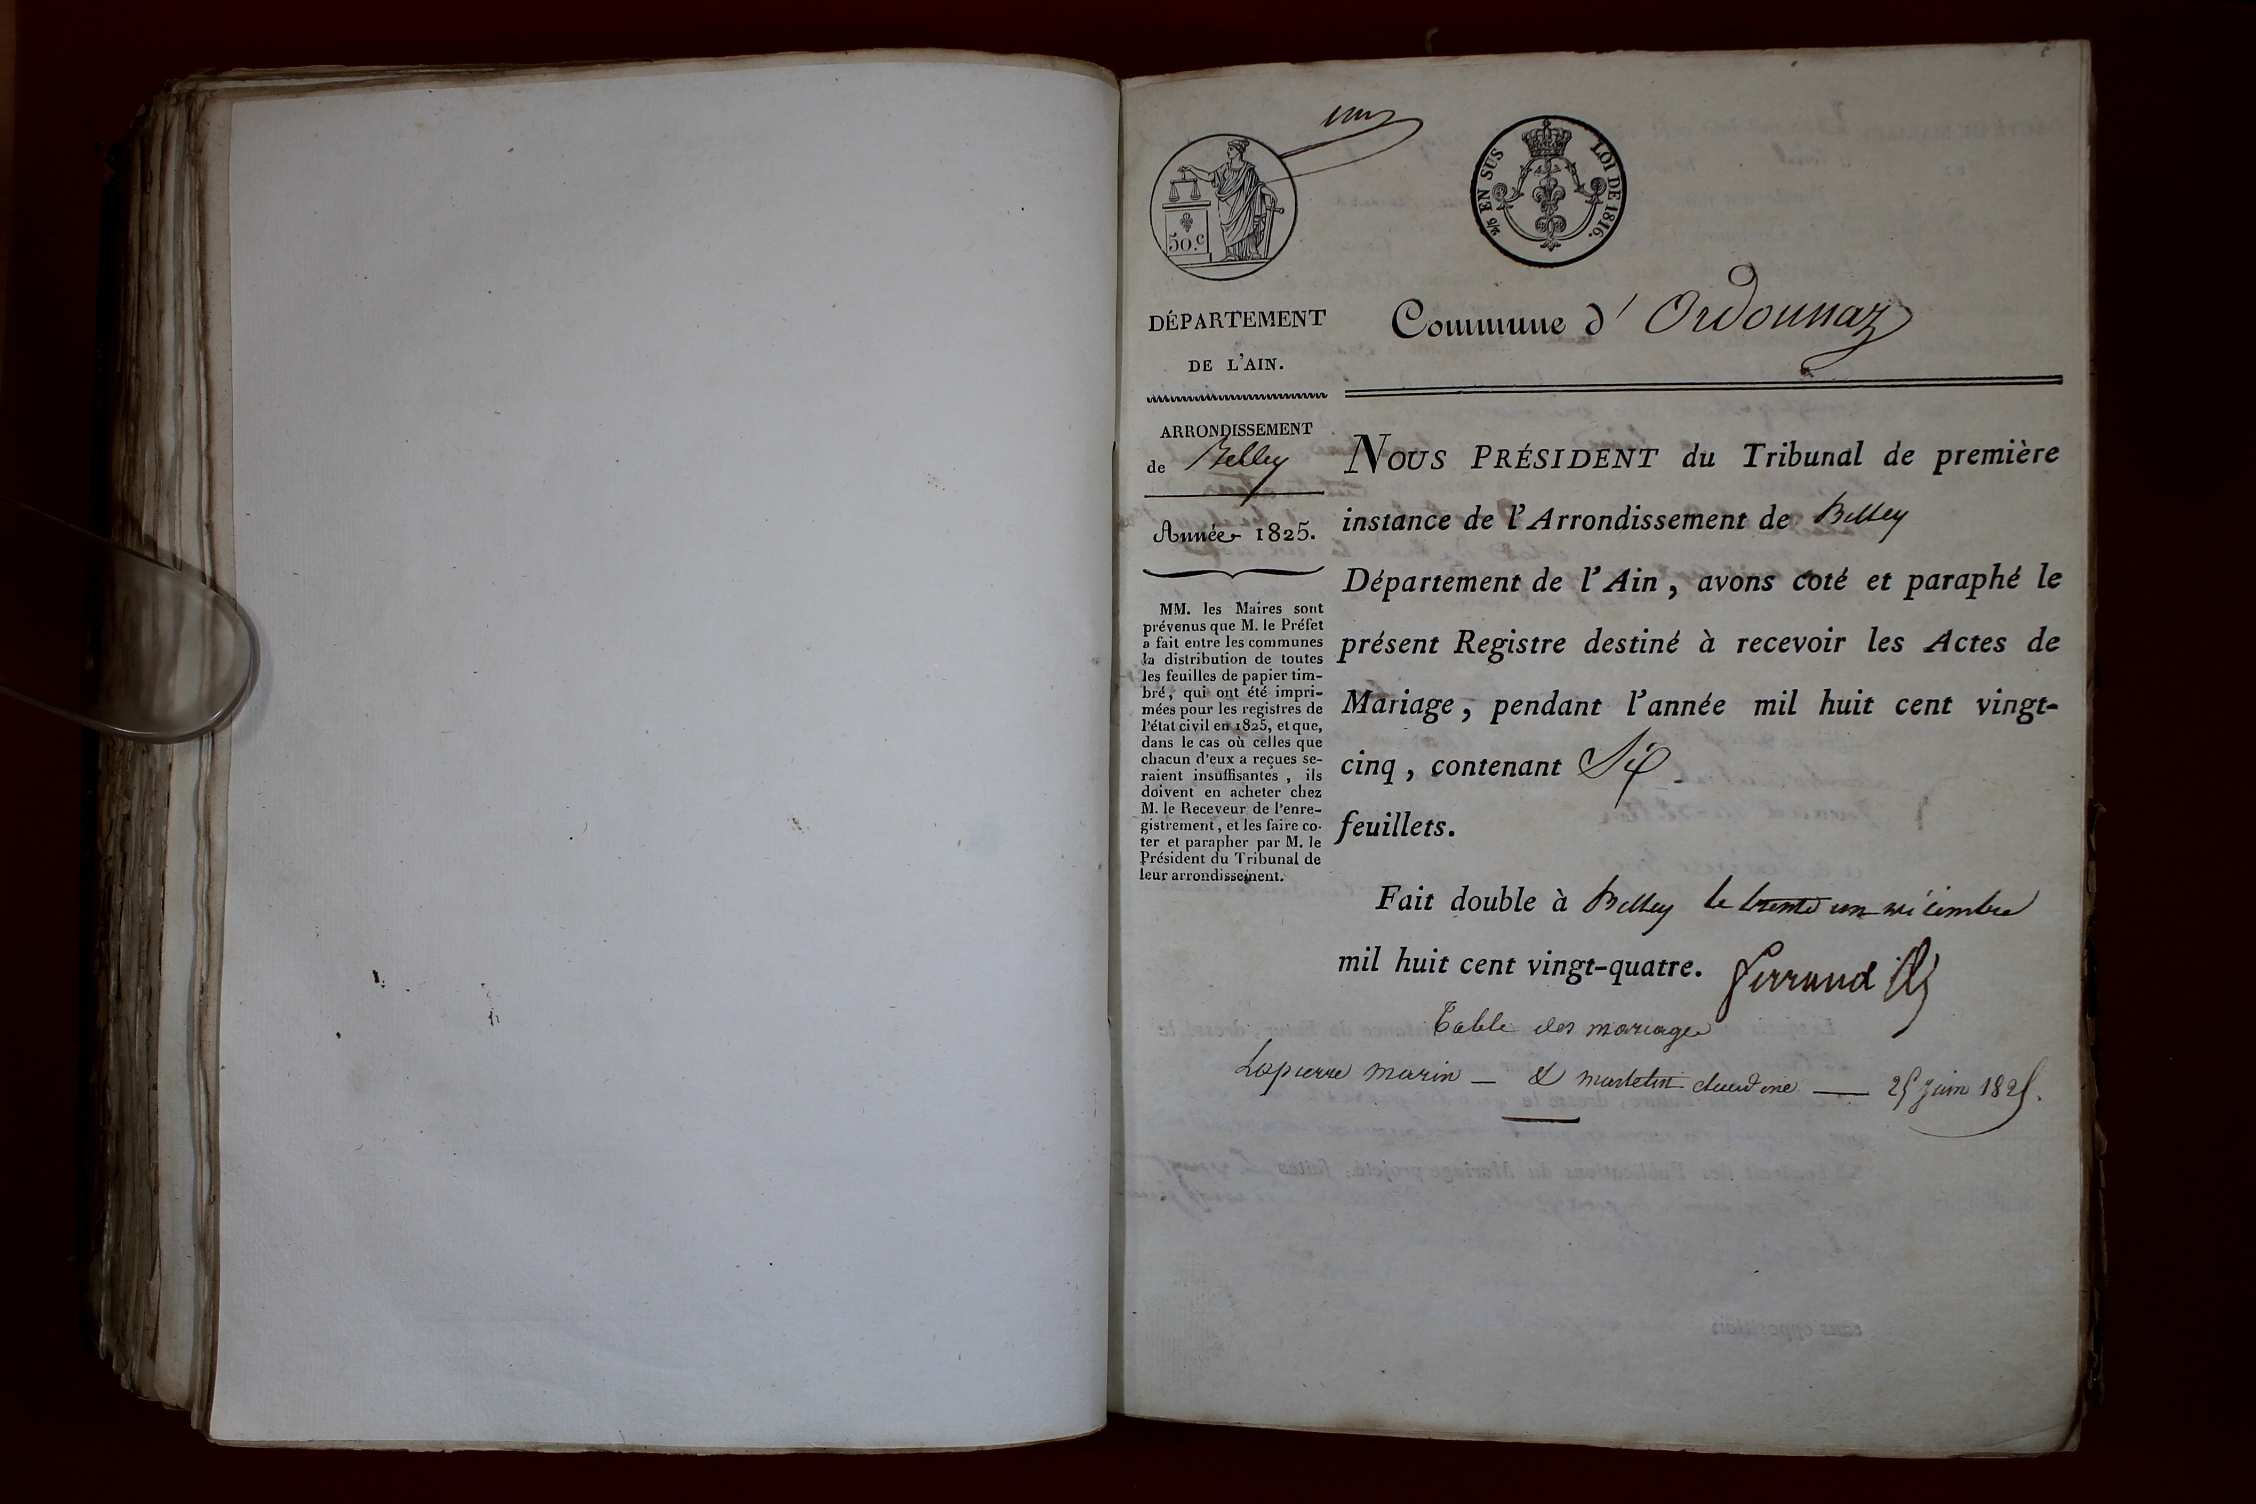 un
50.c
2/5 EN SUS LOI DE 1816.
DÉPARTEMENT
DE L'AIN.
Commune d' Ordonnaz
ARRONDISSEMENT
de Belley
Année 1825.
MM. les Maires sont
prévenus que M. le Préfet
a fait entre les communes
la distribution de toutes
les feuilles de papier tim-
bré, qui ont été impri-
mées pour les registres de
l'état civil en 1825, et que,
dans le cas où celles que
chacun d'eux a reçues se-
raient insuffisantes, ils
doivent en acheter chez
M. le Receveur de l'enre-
gistrement, et les faire co-
ter et parapher par M. le
Président du Tribunal de
leur arrondissement.
NOUS PRÉSIDENT du Tribunal de première
instance de l'Arrondissement de Belley
Département de l'Ain, avons coté et paraphé le
présent Registre destiné à recevoir les Actes de
Mariage, pendant l'année mil huit cent vingt-
cinq, contenant Six
feuillets.
Fait double à Belley le trente un décembre
mil huit cent vingt-quatre. Ferrand
Table des mariages
Lapierre marin — & martelin claudine — 25 juin 1825.